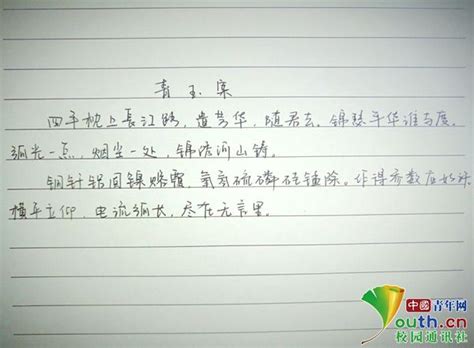 青玉案
四年枕上長江路，遣芳华，随君去，锦瑟年华谁与度。
弧光一点，烟尘一处，锦绣河山铸。
铜针铝圆镍帽，氧氢硫磷硅锰除。得参数应如
横平立仰，电流弧长，尽在无言里。
中國青年网
youth.cn
校园通讯社